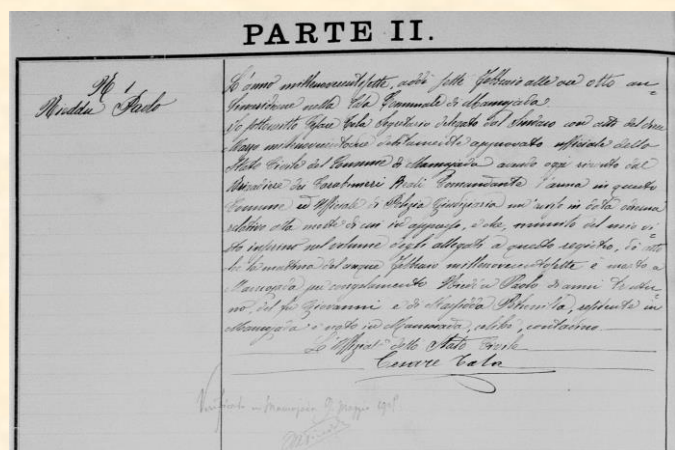 PARTE II.
N. 1
Muddu Paolo
L'anno millenovecentosette, addì sette febbraio alle ore otto an-
timeridiane nella Casa Comunale di Mamojada.
Io sottoscritto Cesare Cala Segretario delegato dal Sindaco con atto del
Marzo debitamente approvato ufficiale dello
Stato Civile del Comune di Mamojada avendo oggi ricevuto dal
Brigadiere dei Carabinieri Reali Comandante l'arma in questo
Comune ed Officiale di Polizia Giudiziaria un avviso in data
relativo alla morte di cui in appresso, e che, munito del mio vi-
sto inserisco nel volume degli allegati a questo registro, dò atto
che la mattina del cinque febbraio millenovecentosette è morto a
Mamojada per congelamento Paolo di anni
no, del fu Giovanni e di residente in
Mamojada e nato in Mamojada, celibe, contadino
L'Offizial dello Stato Civile
Cesare Cala
Verificato Mamojada 9 Maggio 1908